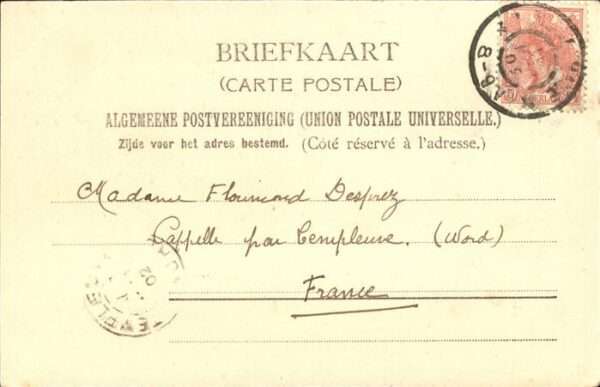 BRIEFKAART
(CARTE POSTALE)
ALGEMEENE POSTVEREENIGING (UNION POSTALE UNIVERSELLE.)
Zijde voor het adres bestemd. (Côté réservé à l'adresse.)
Madame Floumond Desprez
Cappelle par Templeuve. (Word)
France